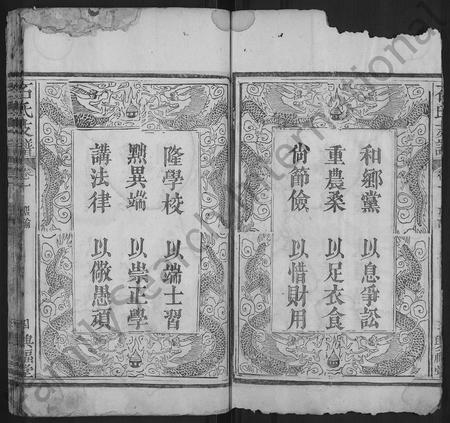 和鄉黨 以息爭訟
重農桑 以足衣食
尚節儉 以惜財用
隆學校 以端士習
黜異端 以崇正學
講法律 以儆愚頑
氏支譜 卷一
FamilySearch International